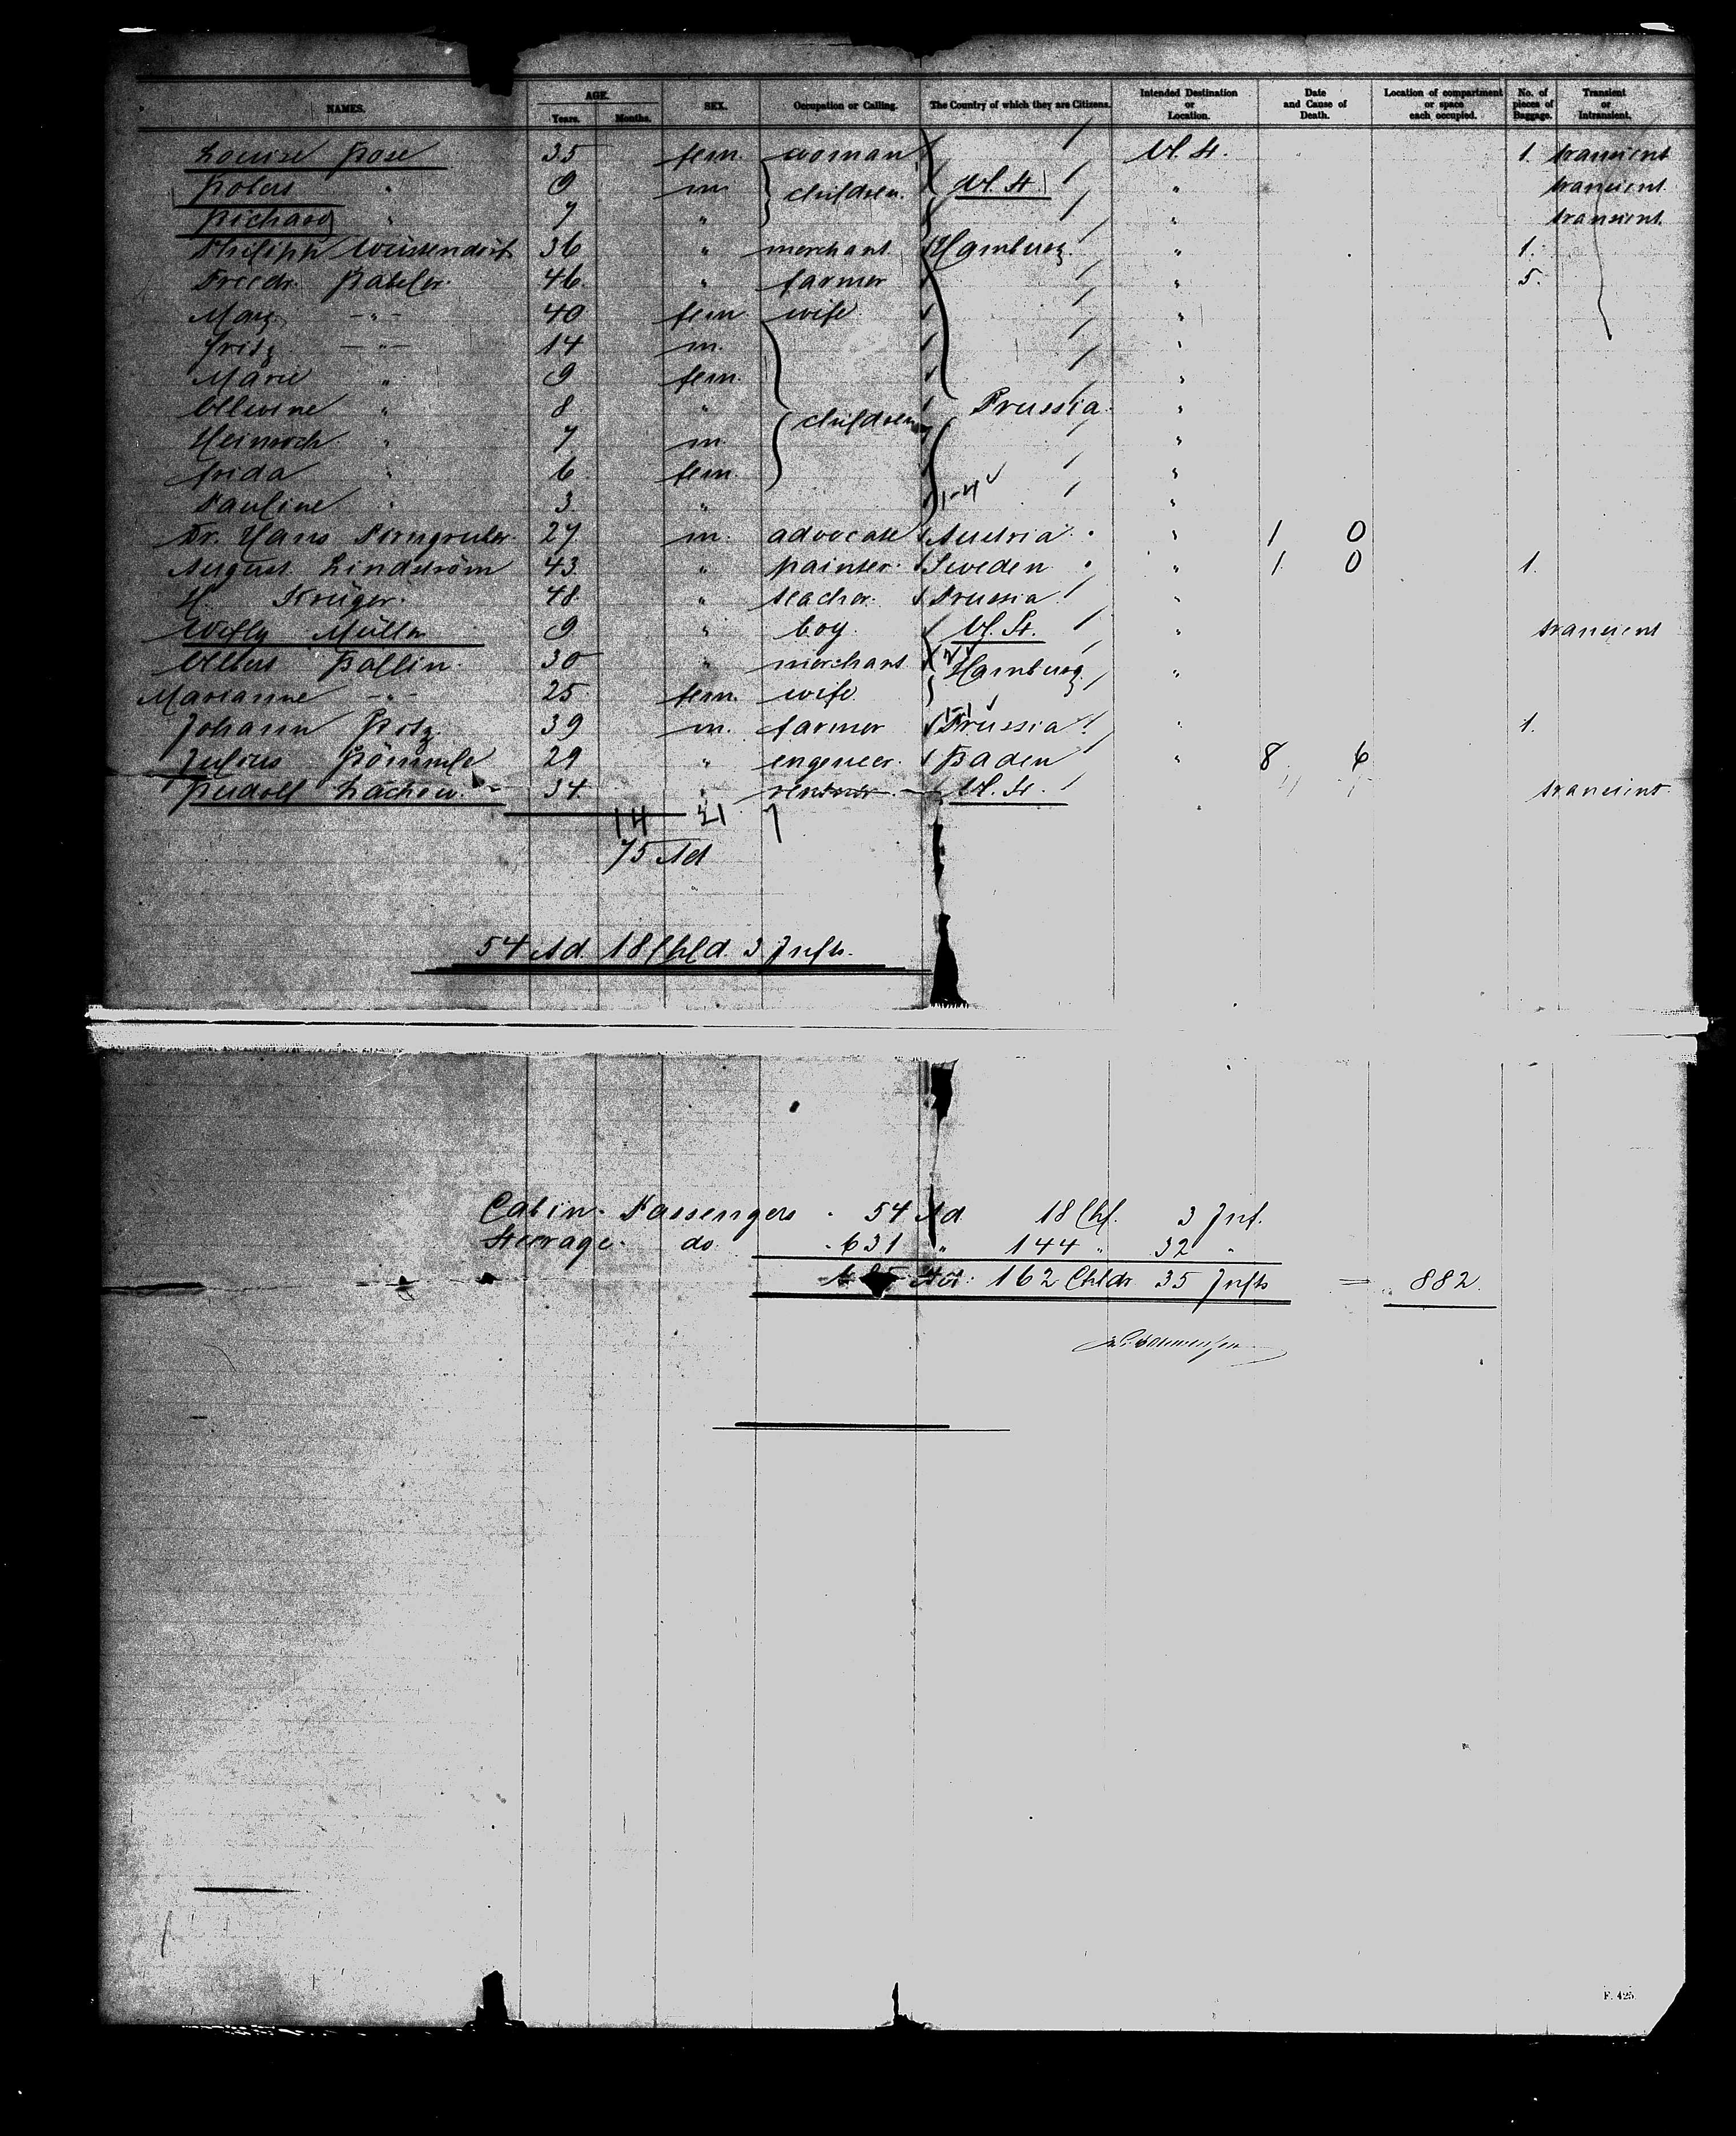 NAMES. AGE. Years. Months. SEX. Occupation or Calling. The Country of which they are Citizens. Intended Destination or Location. Date and Cause of Death. Location of compartment or space each occupied. No. of pieces of Baggage. Transient or Intransient.
Louise Rose 35 fem. woman U. St. 1. transient
Robert " 9 m children. U. St. " transient
Richard " 7 " " transient
Philipp 36 " merchant Hamburg " 1.
Friedr. 46 " farmer " 5.
Marg. -"- 40 fem wife "
Fritz -"- 14 m. "
Marie " 9 fem. "
Allwine " 8 " children Prussia. "
Heinrich " 7 m "
Frida " 6 fem. "
Pauline " 3 " "
Dr. Hans 27 m. advocate Austria " 1 0
August Lindström 43 " painter Sweden " 1 0 1.
H. Krüger 48 " teacher. Prussia "
Willy Müller 9 " boy. U. St. " transient
Albert Ballin 30 " merchant Hamburg "
Marianne -"- 25 fem. wife.
Johann 39 m. farmer Prussia " 1.
Julius 29 " engineer. Baden " 8 6
Rudolf 34 " U. St. transient
14 £1 7
75 Ad
54 Ad. 18 Chld. 3 Infts.
Cabin Passengers 54 Ad 18 Chl. 3 Inf.
Steerage do 631 " 144 " 32 "
162 Chldr 35 Infts = 882.
F. 425